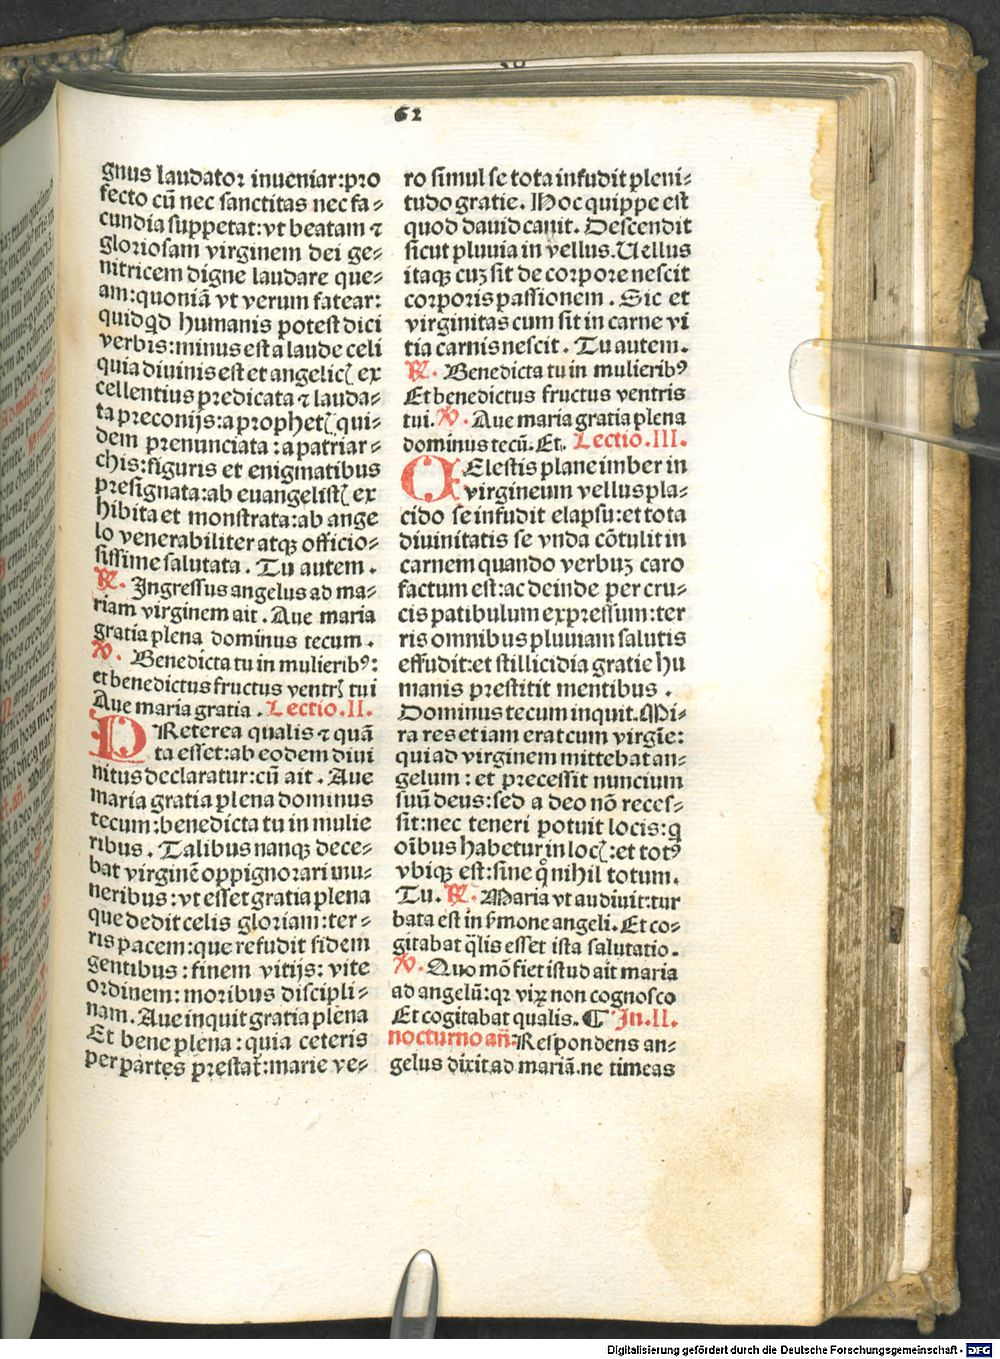 62
gnus laudator inueniar:pro
fecto cū nec sanctitas nec fa⸗
cundia suppetat:vt beatam ⁊
gloriosam virginem dei ge⸗
nitricem digne laudare que⸗
am:quoniā vt verum fatear:
quidqd humanis potest dici
verbis:minus est a laude celi
quia diuinis est et angelicꝭ ex
cellentius predicata ⁊ lauda⸗
ta preconijs:a prophetꝭ qui⸗
dem prenunciata:a patriar⸗
chis:figuris et enigmatibus
presignata:ab euangelistꝭ ex
hibita et monstrata:ab ange
lo venerabiliter atqꝫ officio⸗
sissime salutata. Tu autem.
℟. Ingressus angelus ad ma⸗
riam virginem ait. Aue maria
gratia plena dominus tecum.
℣. Benedicta tu in mulieribꝰ:
et benedictus fructus ventrꝭ tui
Aue maria gratia. Lectio.II.
PReterea qualis ⁊ quā
ta esset:ab eodem diui
nitus declaratur:cū ait. Aue
maria gratia plena dominus
tecum:benedicta tu in mulie
ribus. Talibus nanqꝫ dece⸗
bat virginē oppignorari mu⸗
neribus:vt esset gratia plena
que dedit celis gloriam:ter⸗
ris pacem:que refudit fidem
gentibus:finem vitijs:vite
ordinem:moribus discipli⸗
nam. Aue inquit gratia plena
Et bene plena:quia ceteris
per partes prestat̄:marie ve⸗
ro simul se tota infudit pleni⸗
tudo gratie. Hoc quippe est
quod dauid canit. Descendit
sicut pluuia in vellus. Uellus
itaqꝫ cuꝫ sit de corpore nescit
corporis passionem. Sic et
virginitas cum sit in carne vi
tia carnis nescit. Tu autem.
℟. Benedicta tu in mulieribꝰ
Et benedictus fructus ventris
tui. ℣. Aue maria gratia plena
dominus tecū. Et. Lectio.III.
CElestis plane imber in
virgineum vellus pla⸗
cido se infudit elapsu:et tota
diuinitatis se vnda cōtulit in
carnem quando verbuꝫ caro
factum est:ac deinde per cru⸗
cis patibulum expressum:ter
ris omnibus pluuiam salutis
effudit:et stillicidia gratie hu
manis prestitit mentibus.
Dominus tecum inquit. Mi⸗
ra res etiam erat cum virgīe:
qui ad virginem mittebat an⸗
gelum:et precessit nuncium
suū deus:sed a deo nō reces⸗
sit:nec teneri potuit locis:q
oībus habetur in locꝭ:et totꝰ
vbiqꝫ est:sine qͦ nihil totum.
Tu. ℟. Maria vt audiuit:tur
bata est in ẜmone angeli. Et co⸗
gitabat q̄lis esset ista salutatio.
℣. Quo mō fiet istud ait maria
ad angelū:qꝛ virū non cognosco
Et cogitabat qualis. ¶ In.II.
nocturno añ: Respondens an⸗
gelus dixit ad mariā. ne timeas
Digitalisierung gefördert durch die Deutsche Forschungsgemeinschaft - DFG